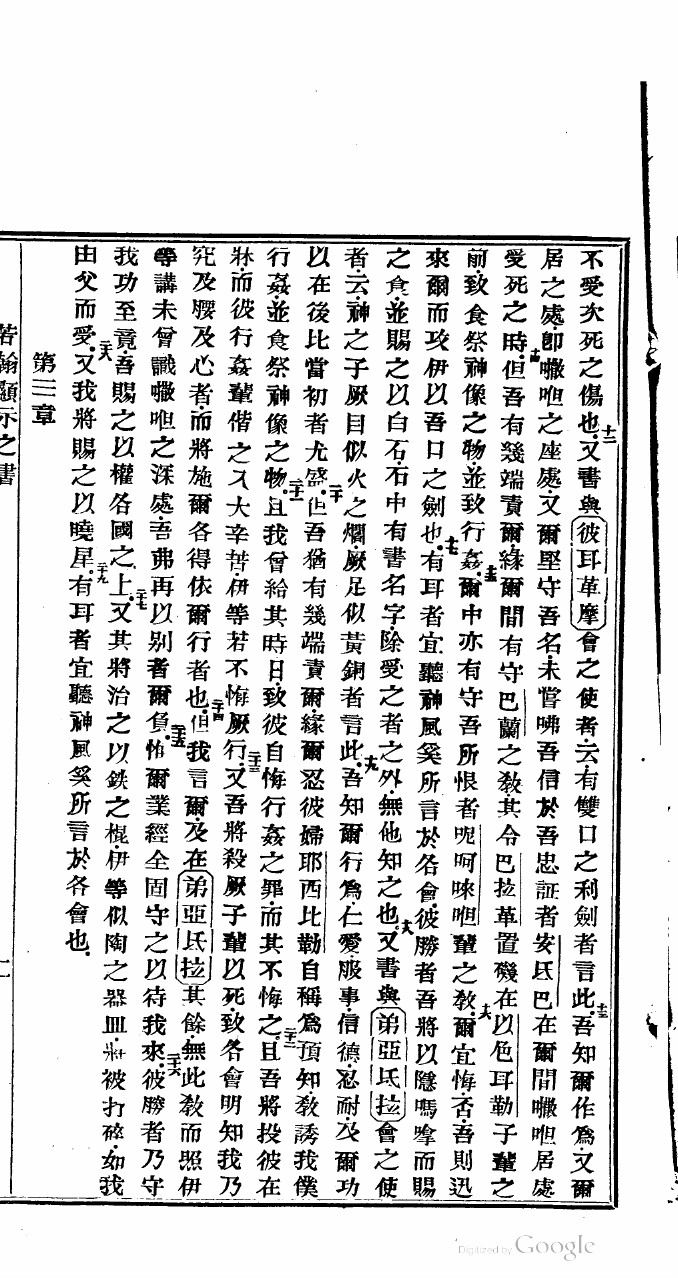 不受次死之傷也十二又書與彼耳革摩會之使者云有雙口之利劍者言此十三吾知爾作為又爾
居之處卽㘔呾之座處又爾堅守吾名未嘗咈吾信於吾忠証者安氐巴在爾間㘔呾居處
受死之時十四但吾有幾端責爾緣爾間有守巴蘭之敎其令巴拉革置磯在以色耳勒子輩之
前致食祭神像之物並致行姦十五爾中亦有守吾所恨者呢呵唻呾輩之敎十六爾宜悔否吾則迅
來爾而攻伊以吾口之劍也十七有耳者宜聽神風奚所言於各會彼勝者吾將以隱嗎嗱而賜
之食並賜之以白石石中有書名字除受之者之外無他知之也十八又書與弟亞氐拉會之使
者云神之子厥目似火之爓厥足似黃銅者言此十九吾知爾行為仁愛服事信德忍耐及爾功
以在後比當初者尤盛二十但吾猶有幾端責爾緣爾忍彼婦耶西比勒自稱為預知敎誘我僕
行姦並食祭神像之物二十一且我曾給其時日致彼自悔行姦之罪而其不悔之二十二且吾將投彼在
牀而彼行姦輩偕之入大辛苦伊等若不悔厥行二十三又吾將殺厥子輩以死致各會明知我乃
究及腰及心者而將施爾各得依爾行者也二十四但我言爾及在弟亞氐拉其餘無此敎而照伊
等講未曾識㘔呾之深處吾弗再以别者爾負二十五惟爾業經全固守之以待我來二十六彼勝者乃守
我功至竟吾賜之以權各國之上二十七又其將治之以鉄之棍伊等似陶之器皿將被打碎如我
由父而受二十八又我將賜之以曉星二十九有耳者宜聽神風奚所言於各會也
第三章
若翰顯示之書
二
Digitized by Google